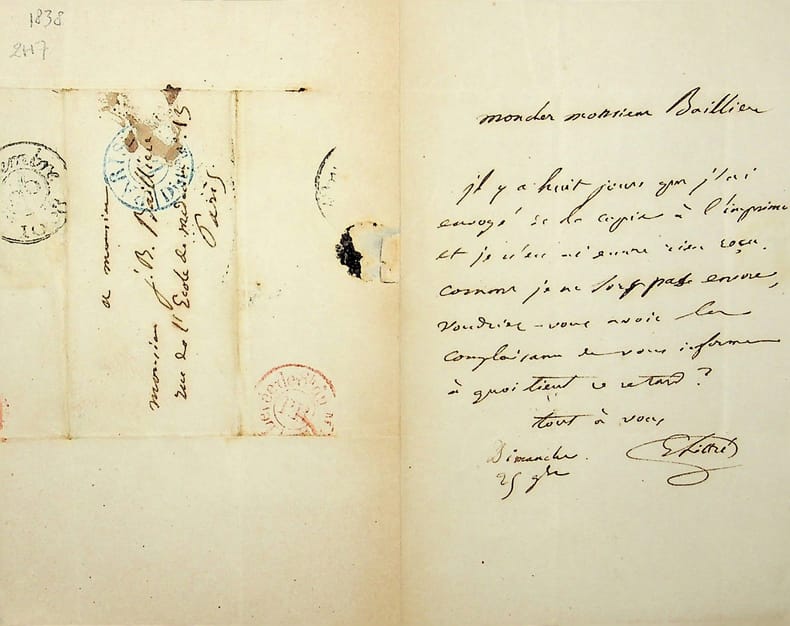 1838
2117
a monsieur
monsieur J. B. Baillière
rue de l'Ecole de médecine n. 13
Paris
PARIS
mon cher monsieur Baillière
il y a huit jours que j'ai
envoyé de la copie à l'imprime
et je n'en ai encore rien reçu.
comme je ne sors pas encore,
voudriez-vous avoir la
complaisance de vous informer
à quoi tient ce retard?
tout à vous
E Littré
Dimanche
25 9bre